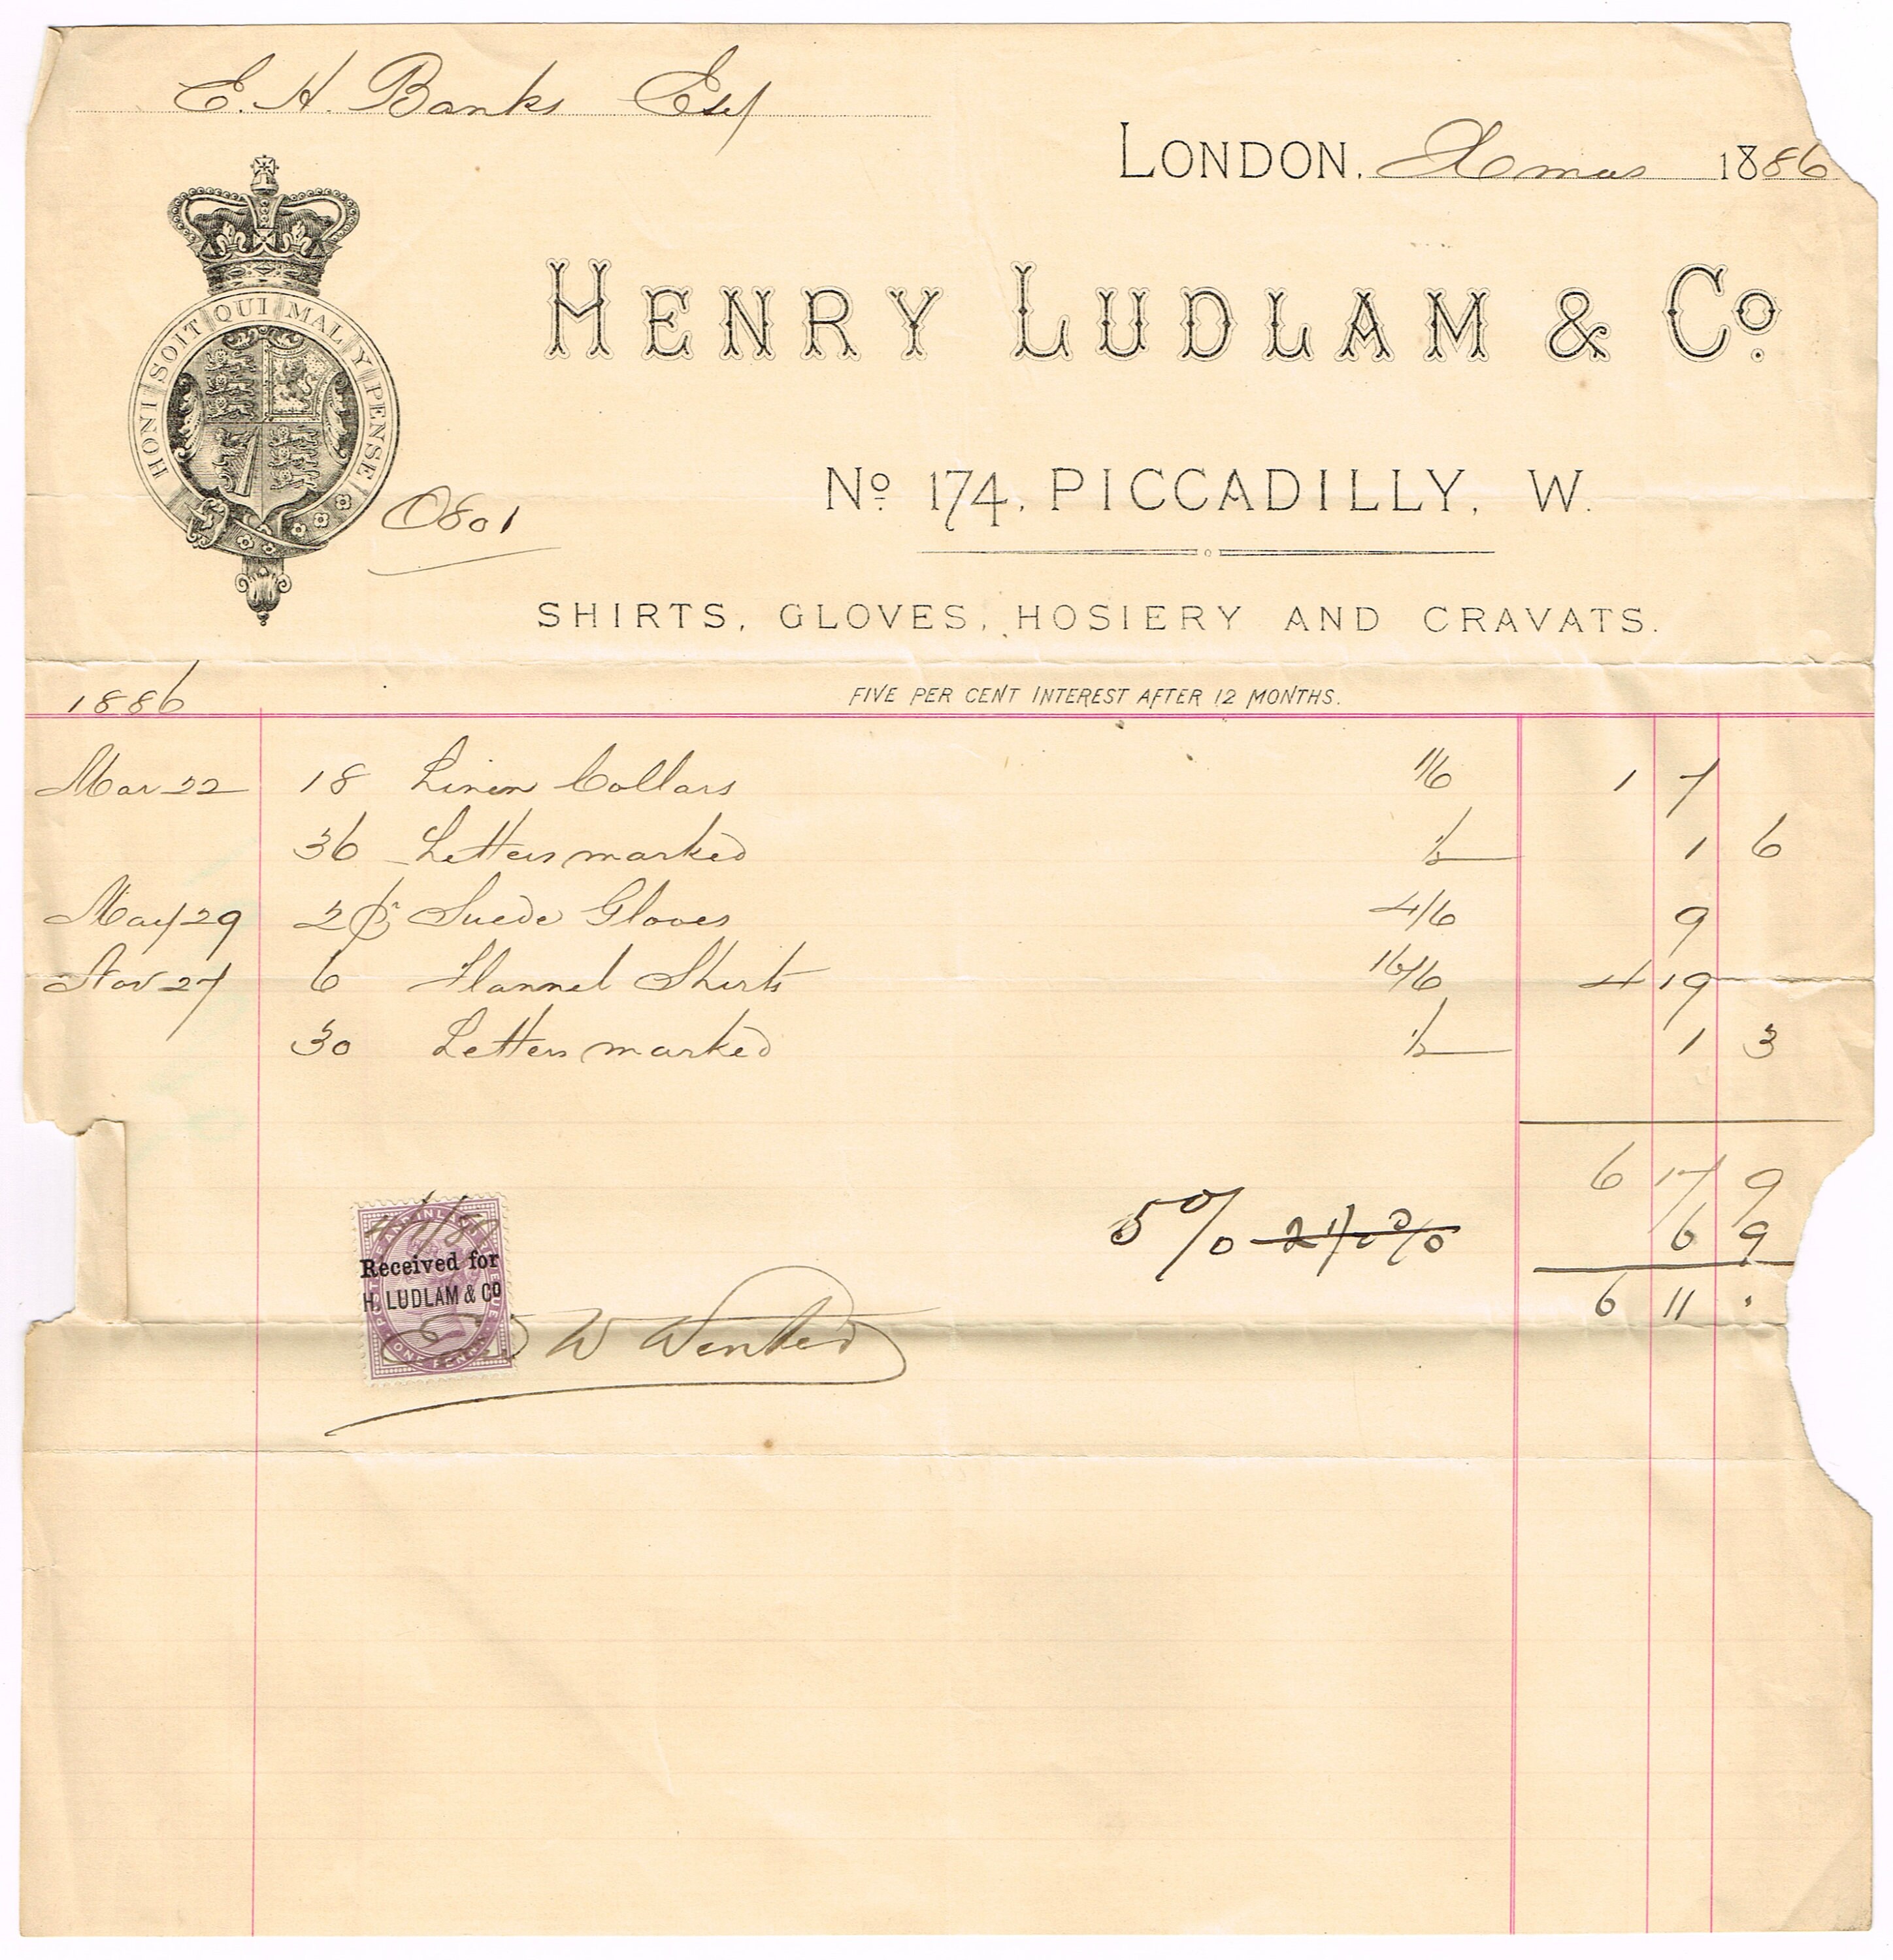 E. H. Banks Esq
LONDON, Xmas 1886
HENRY LUDLAM & Co.
HONI SOIT QUI MAL Y PENSE
No. 174, PICCADILLY, W.
O801
SHIRTS, GLOVES, HOSIERY AND CRAVATS.
1886 FIVE PER CENT INTEREST AFTER 12 MONTHS.
Mar 22 18 Linen Collars 1/6 1 7
36 Letters marked ½ 1 6
May 29 2 pr Suede Gloves 4/6 9
Nov 27 6 Flannel Shirts 16/6 4 19
30 Letters marked ½ 1 3
6 17 9
5% 2½% 6 9
6 11 .
POSTAGE AND INLAND REVENUE
Received for
H. LUDLAM & CO
ONE PENNY
W